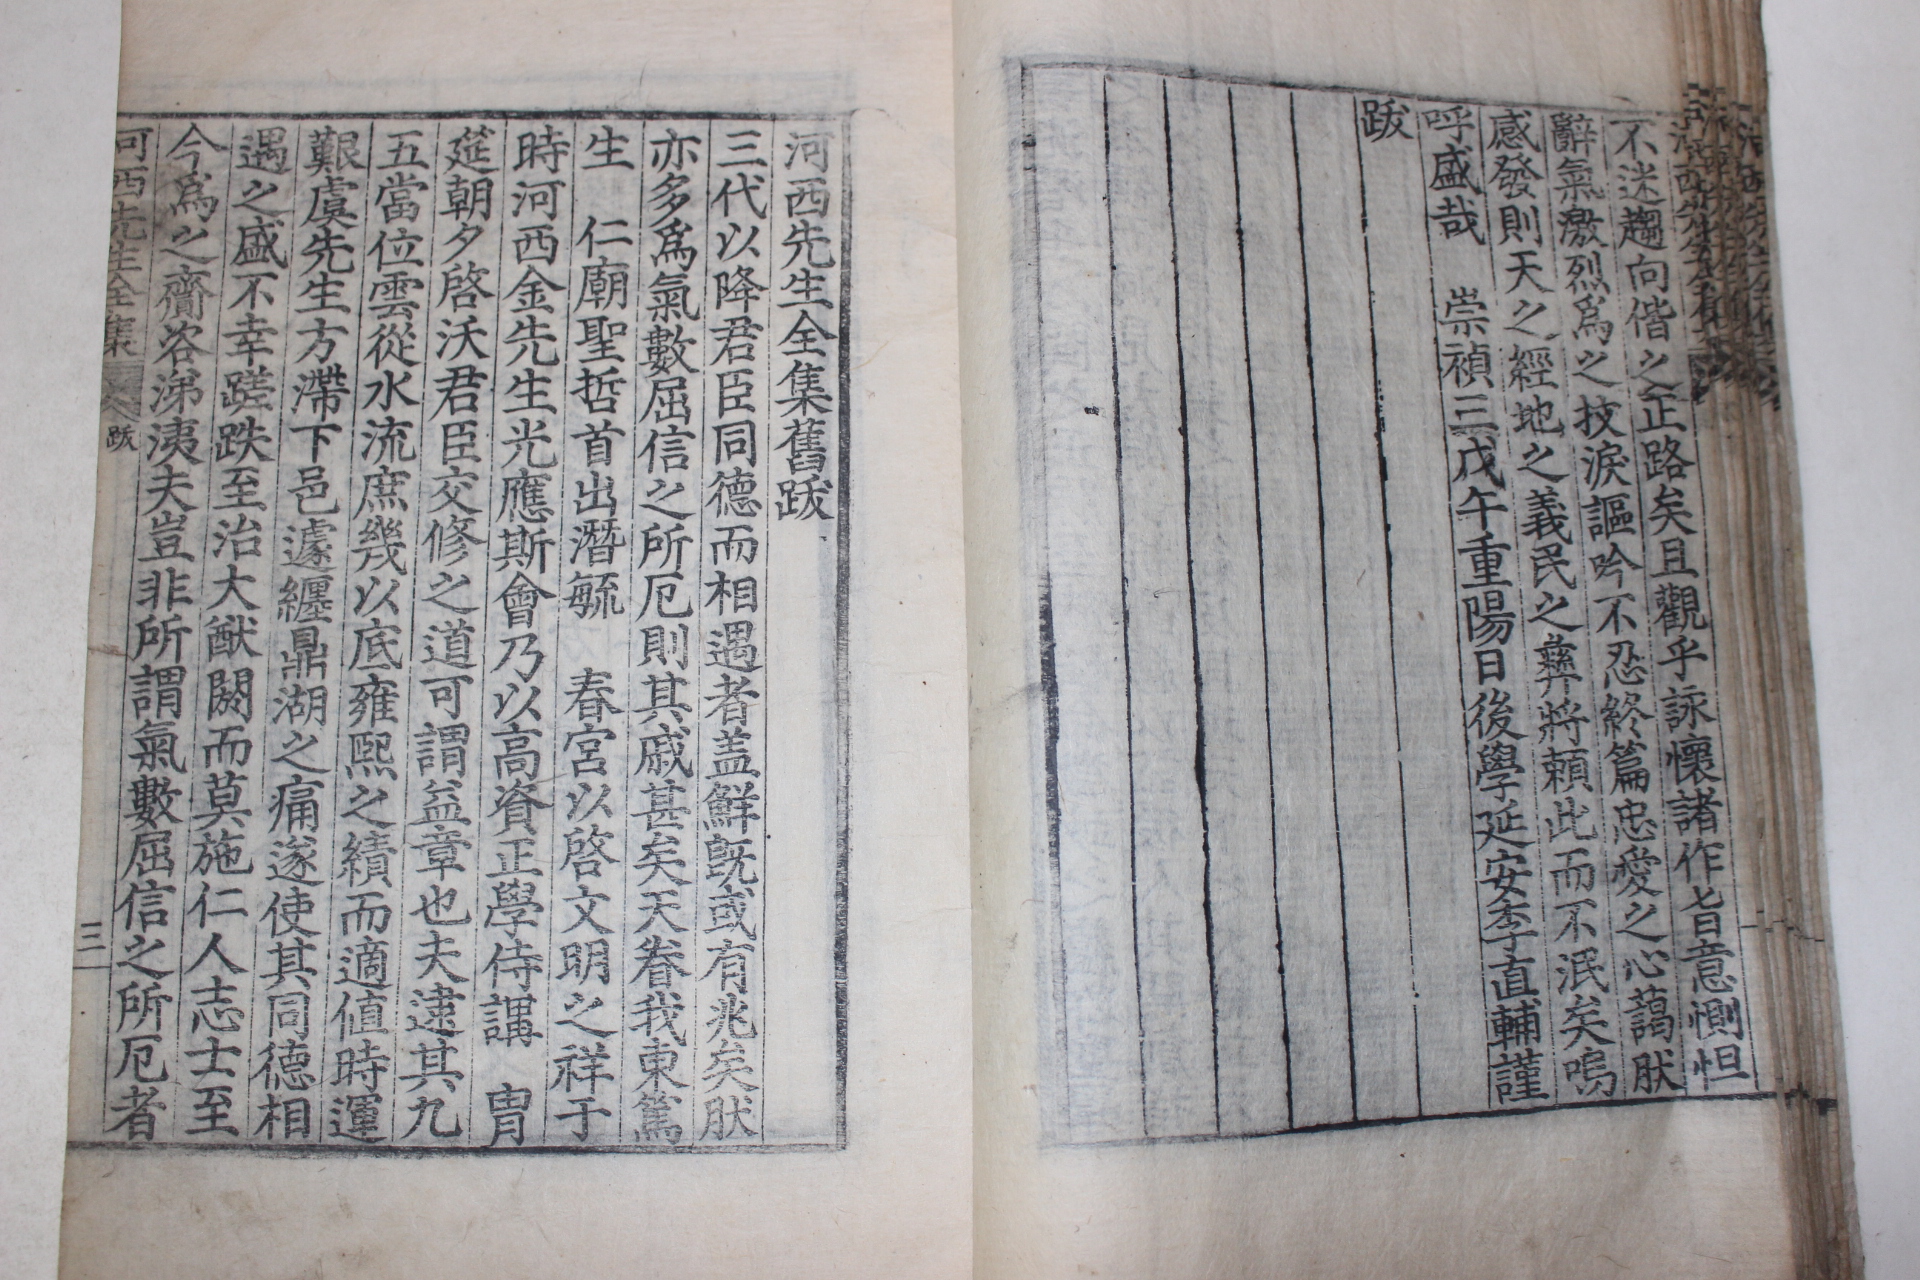 不迷趨向偕之正路矣且觀乎詠懷諸作旨意惻怛
辭氣激烈爲之抆淚謳吟不忍終篇忠愛之心藹肰
感發則天之經地之義民之彝將賴此而不泯矣嗚
呼盛哉 崇禎三戊午重陽日後學延安李直輔謹
跋
河西先生全集舊跋
三代以降君臣同德而相遇者盖鮮旣或有兆矣肰
亦多爲氣數屈信之所厄則其戚甚矣天眷我東篤
生 仁廟聖哲首出潛毓 春宮以啓文明之祥于
時河西金先生光應斯會乃以高資正學侍講 冑
筵朝夕啓沃君臣交修之道可謂益章也夫逮其九
五當位雲從水流庶幾以底雍熙之績而適値時運
艱虞先生方滯下邑遽纏鼎湖之痛遂使其同德相
遇之盛不幸蹉跌至治大猷閼而莫施仁人志士至
今爲之齎咨涕洟夫豈非所謂氣數屈信之所厄者
河西先生全集 跋 三